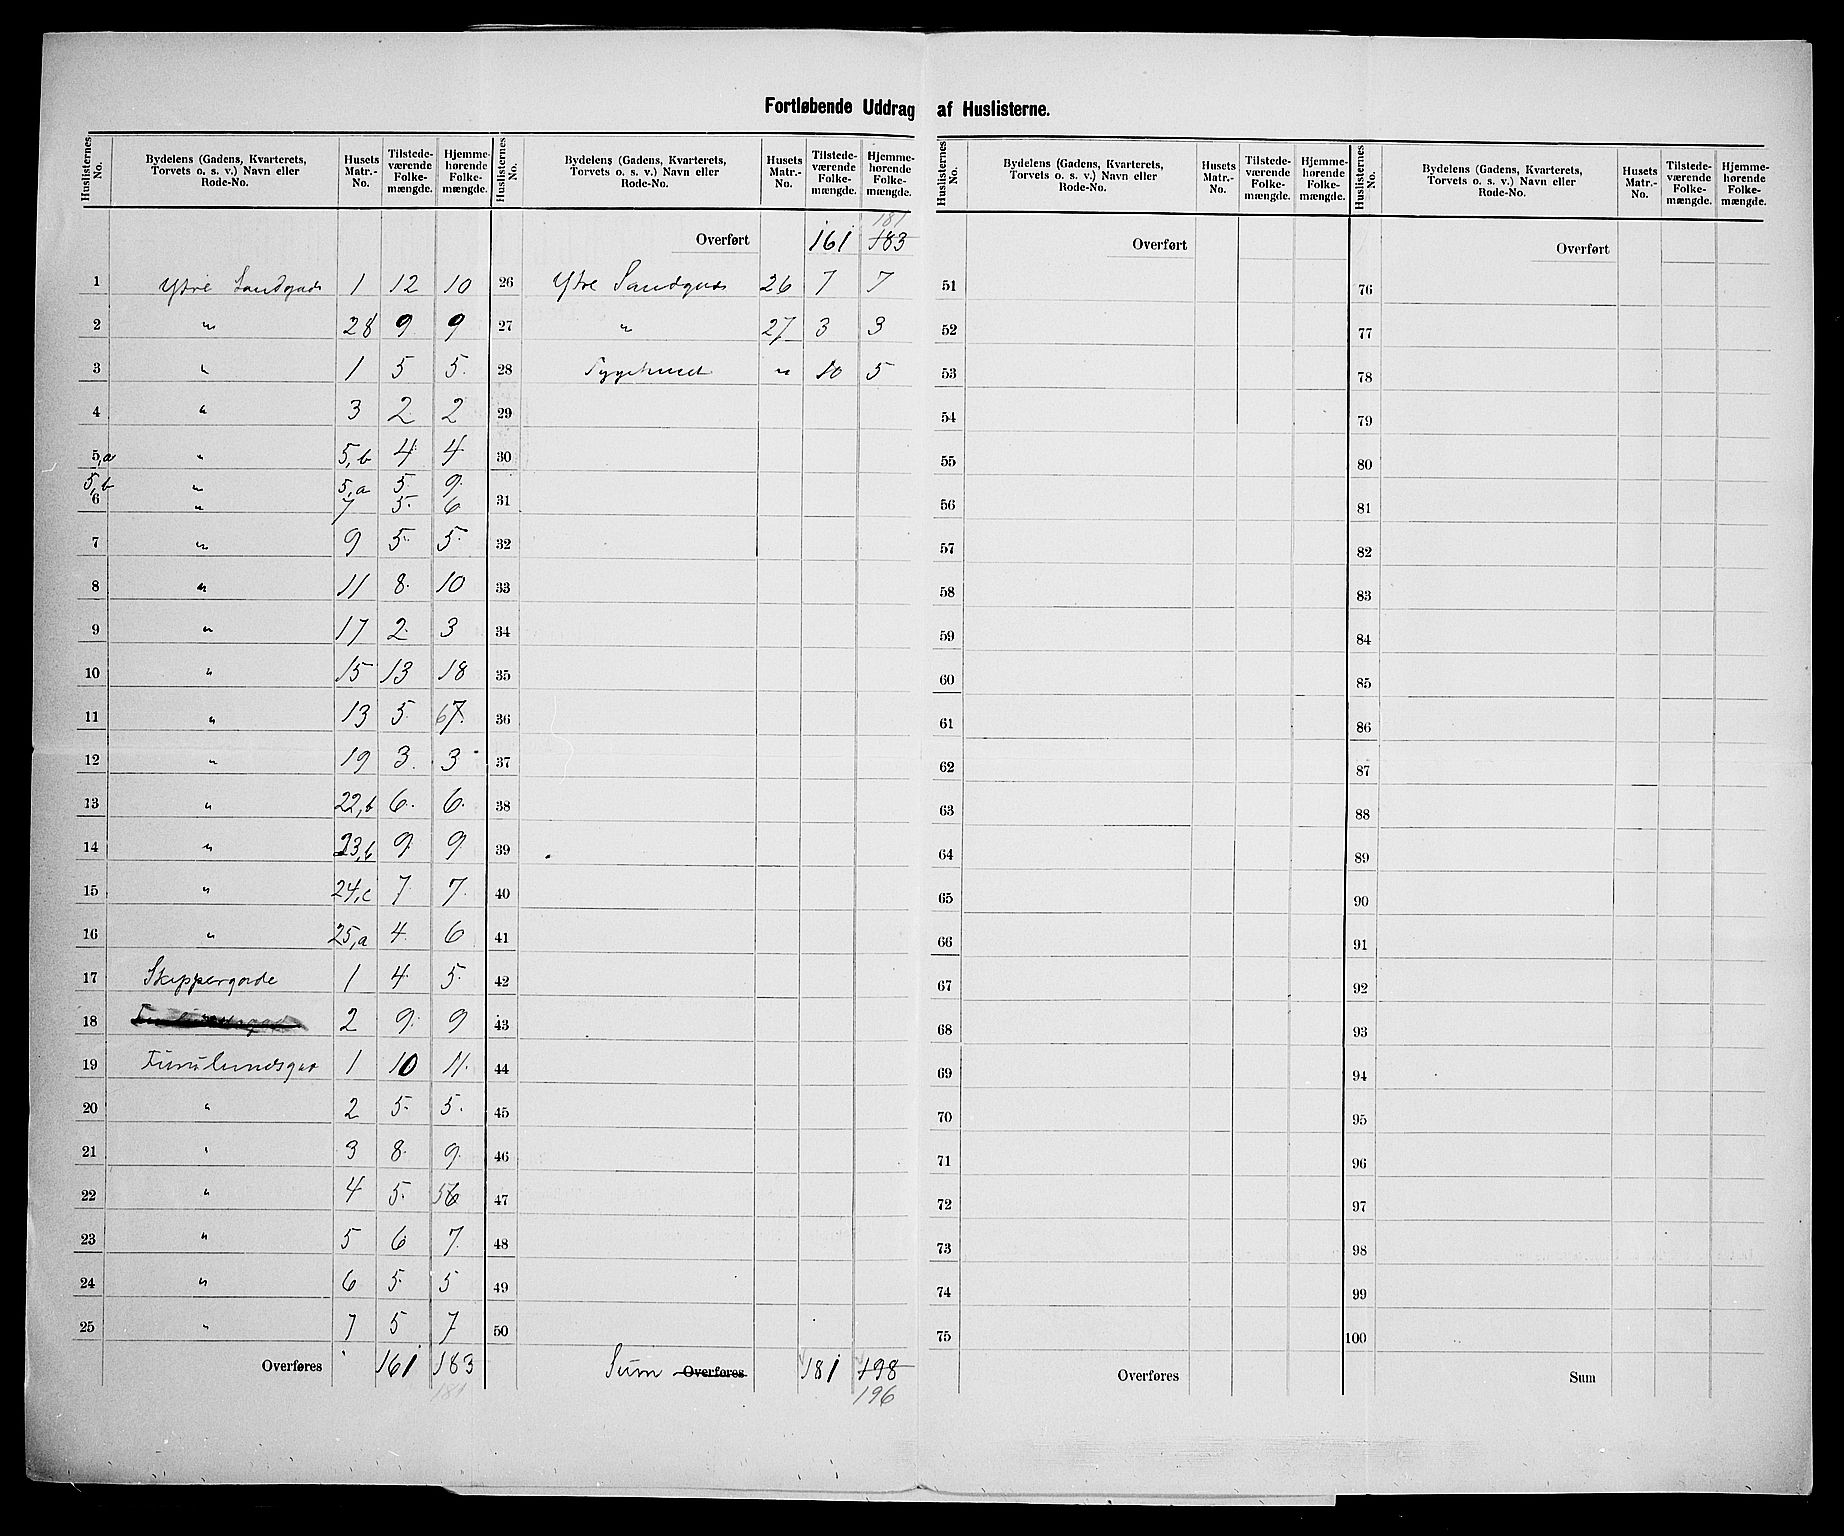 Fortløbende Uddrag af Huslisterne.
Huslisternes No. | Bydelens (Gadens, Kvarterets, Torvets o. s. v.) Navn eller Rode-No. | Husets Matr.-No. | Tilstedeværende Folkemængde. | Hjemmehørende Folkemængde.
1 Ytre Sandgade 1 12 10
2 " 28 9 9
3 " 1 5 5.
4 " 3 2 2
5,a " 5,b 4 4
5,b " 5,a 5. 9.
6 " 7 5. 6
7 " 9 5. 5.
8 " 11 8. 10
9 " 17 2. 3
10 " 15 13 18
11 " 13 5. 67.
12 " 19 3. 3
13 " 22,b 6. 6.
14 " 23,b 9. 9.
15 " 24,c 7. 7.
16 " 25,a 4. 6
17 Skippergade 1 4 5.
18 2 9. 9
19 Furulundsgad 1 10 11.
20 " 2 5. 5.
21 " 3 8. 9.
22 " 4 5. 56
23 " 5 6 7.
24 " 6 5. 5
25 " 7 5 7
Overføres 161 183
181
Huslisternes No. | Bydelens (Gadens, Kvarterets, Torvets o. s. v.) Navn eller Rode-No. | Husets Matr.-No. | Tilstedeværende Folkemængde. | Hjemmehørende Folkemængde.
181
Overført 161 183
26 Ytre Sandgade 26 7 7
27 " 27 3 3
28 Sygehuset " 10 5
29
30
31
32
33
34
35
36
37
38
39
40
41
42
43
44
45
46
47
48
49
50
Sum Overføres 181 198
196
Huslisternes No. | Bydelens (Gadens, Kvarterets, Torvets o. s. v.) Navn eller Rode-No. | Husets Matr.-No. | Tilstedeværende Folkemængde. | Hjemmehørende Folkemængde.
Overført
51
52
53
54
55
56
57
58
59
60
61
62
63
64
65
66
67
68
69
70
71
72
73
74
75
Overføres
Huslisternes No. | Bydelens (Gadens, Kvarterets, Torvets o. s. v.) Navn eller Rode-No. | Husets Matr.-No. | Tilstedeværende Folkemængde. | Hjemmehørende Folkemængde.
Overført
76
77
78
79
80
81
82
83
84
85
86
87
88
89
90
91
92
93
94
95
96
97
98
99
100
Sum